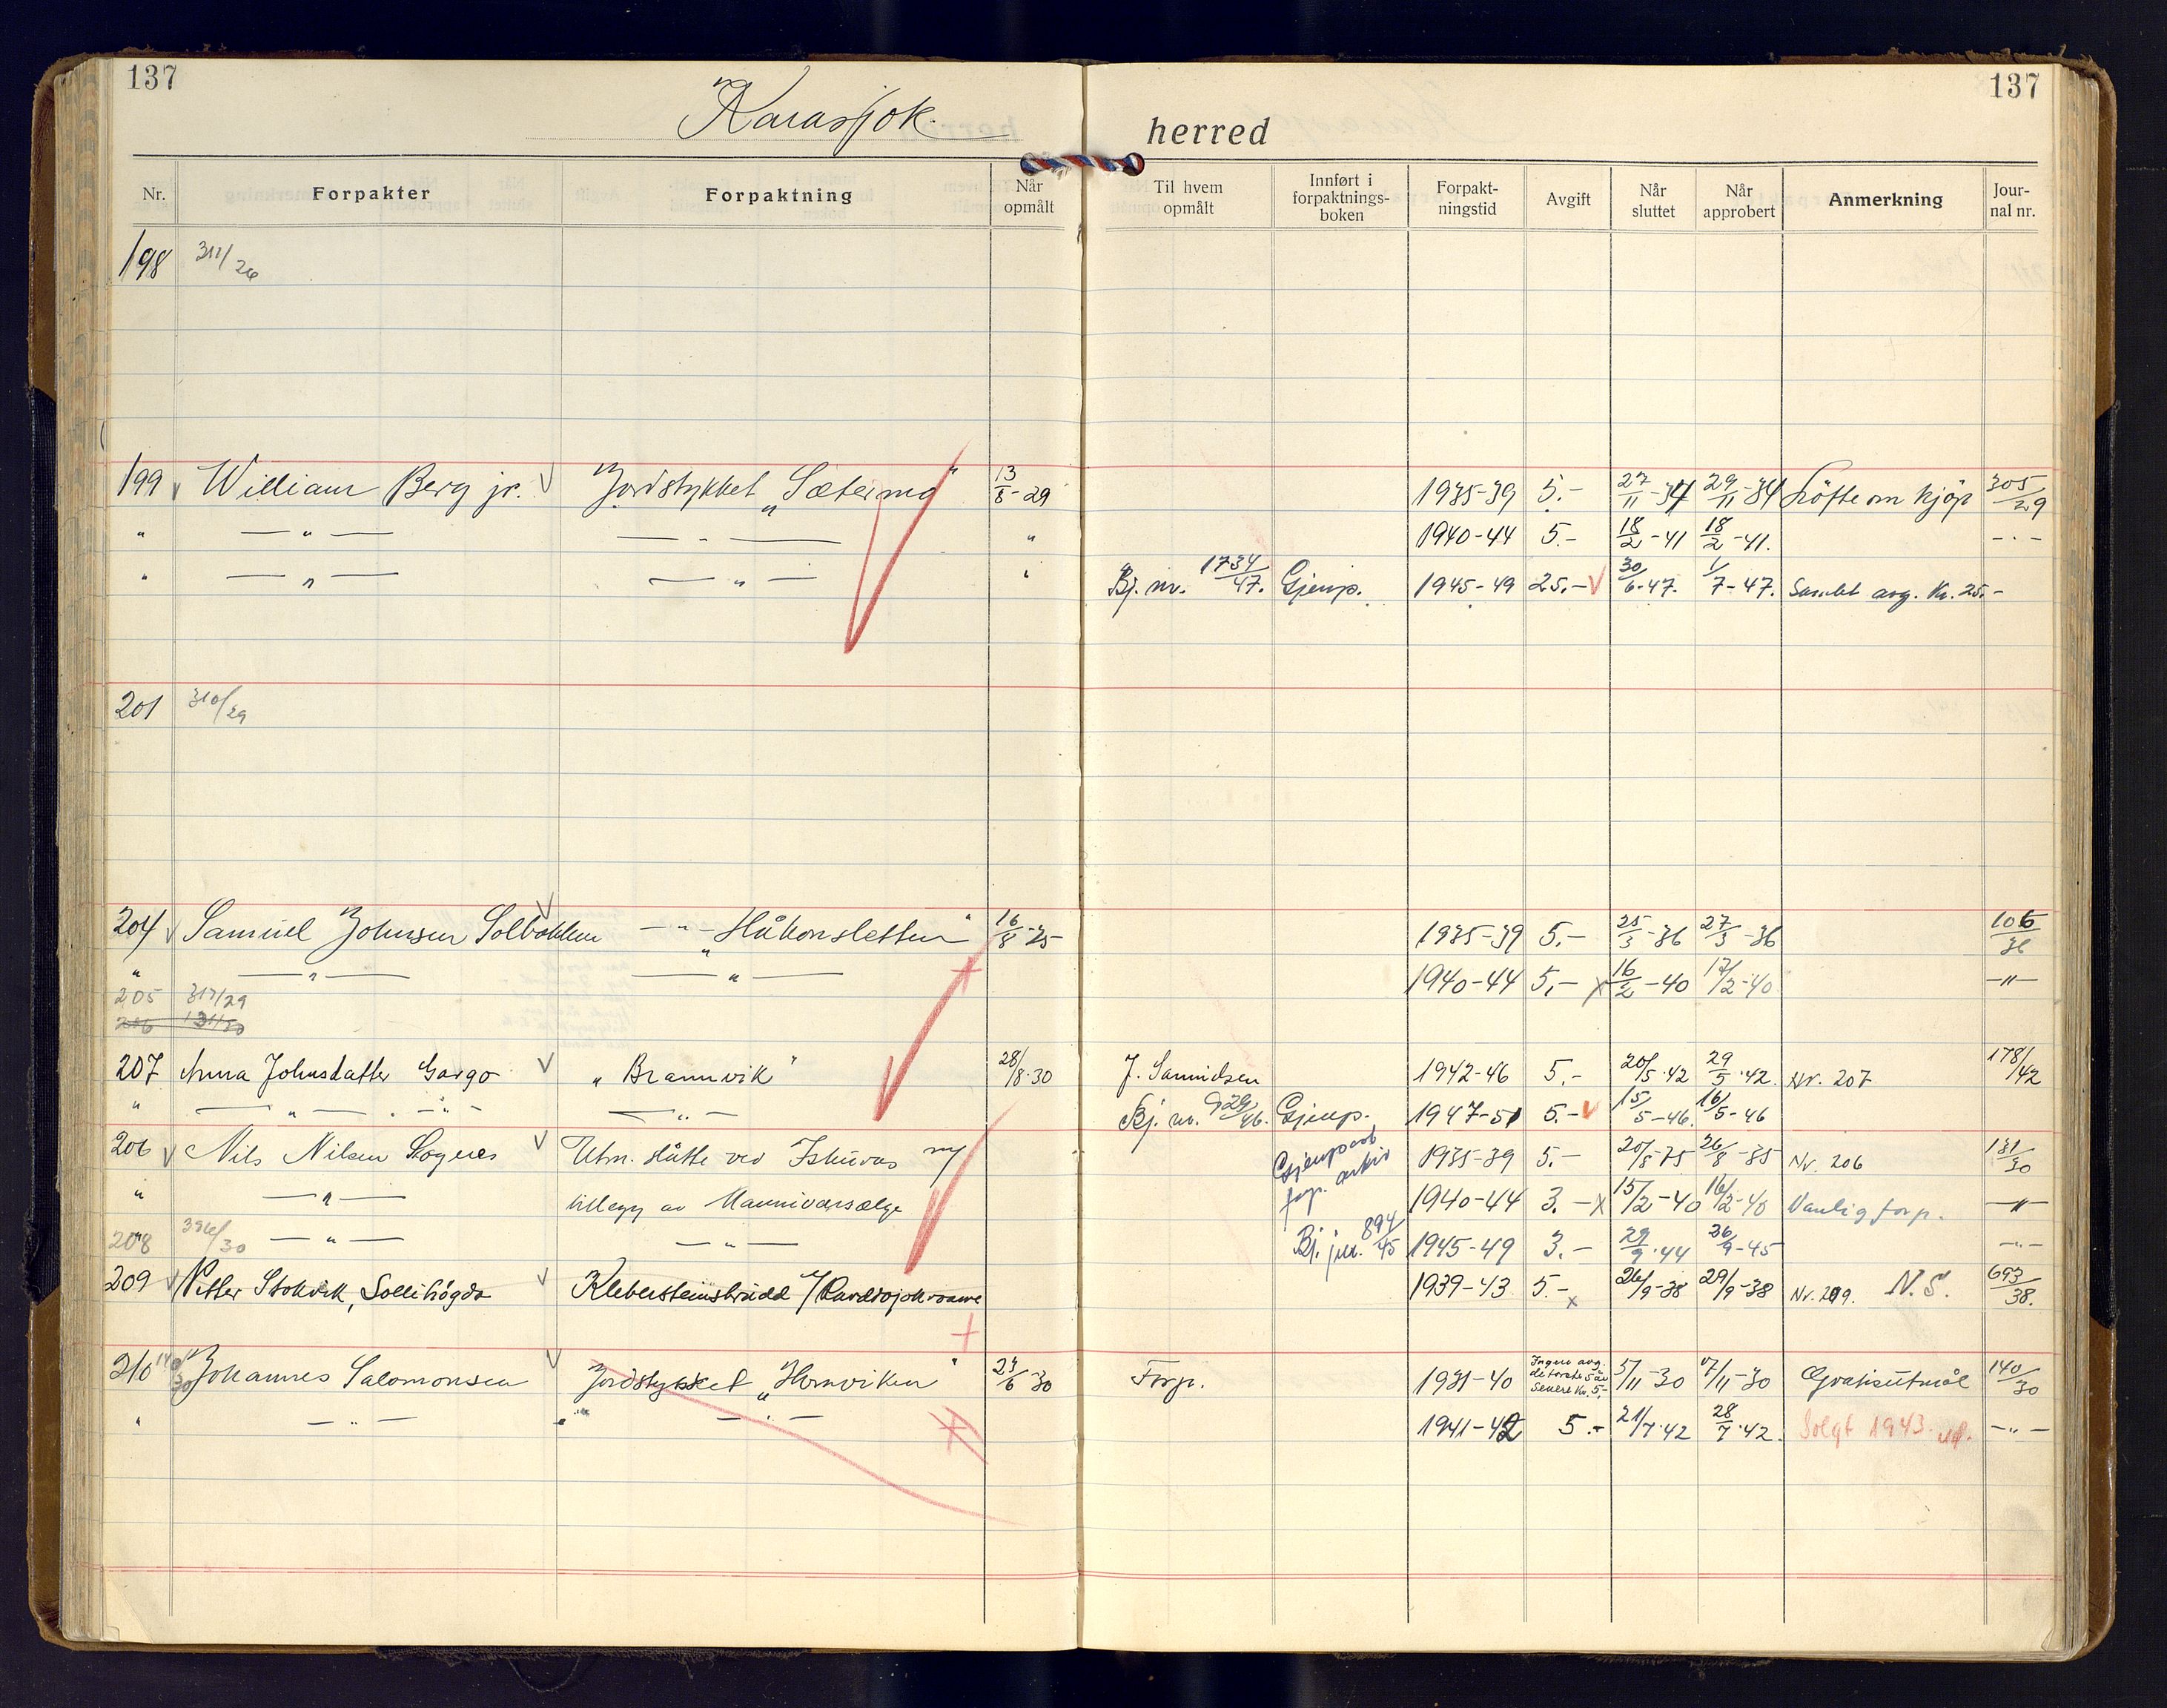 137
137
Karasjok
herred
Nr. Forpakter Forpaktning Når opmålt Til hvem opmålt Innført i forpaktnings-boken Forpakt-ningstid Avgift Når sluttet Når approbert Anmerkning Jour-nal nr.
198 311/26
199 William Berg jr. Jordstykket „Sætermo" 13/8-29 1935-39 5.- 27/11-34 29/11-34 Löfte om kjöp 305/29
" — " — — " — " 1940-44 5.- 18/2-41 18/2-41. - " -
" — " — — " — " Bj. nr. 1734/47. Gjenp. 1945-49 25.- 30/6-47. 1/7-47. Samlet avg. Kr. 25.-
201 310/29
204 Samuel Johnsen Solbakken — " — „Håkonsletten" 16/8-35 1935-39 5.- 25/3-36 27/3-36 106/36
" — " — — " — 1940-44 5,- x 16/2-40 17/2-40 — " —
205 317/29
206 131/30
207 Anna Johnsdatter Gargo „Brannvik" 28/8-30 J. Samuelsen 1942-46 5.- 20/5-42 29/5-42. Nr. 207 178/42
" — " — . — " — — " — Bj. nr. 929/46. Gjenp. 1947-51 5.- 15/5-46. 16/5-46
206 Nils Nilsen Sognes Utm. slåtte ved Iskuras ny Gjenpart forp. arkiv 1935-39 5.- 20/8-35 26/8-35 Nr. 206 131/30
" — " — tillegg av Mannivarsælge 1940-44 3.- x 15/2-40 16/2-40 Vanlig forp. — " —
208 396/30 — " — — " — Bj. jnr. 894/45 1945-49 3.- 29/9-44 26/9-45 — " —
209 Petter Stokvik, Sollihögda Kleberstensbrudd v/ 1939-43 5.- x 26/9-38 29/9-38 Nr. 209. N.S. 693/38.
210 140/30 Johannes Salomonsen Jordstykket „Hornviken" 24/6-30 Forp. 1931-40 Ingen avg. de første 5 år Senere Kr. 5.- 5/11-30 7/11-30 Gratisutmål 140/30
" — " — " — " — 1941-42 5.- 21/7-42 28/7-42. Solgt 1943. — " —